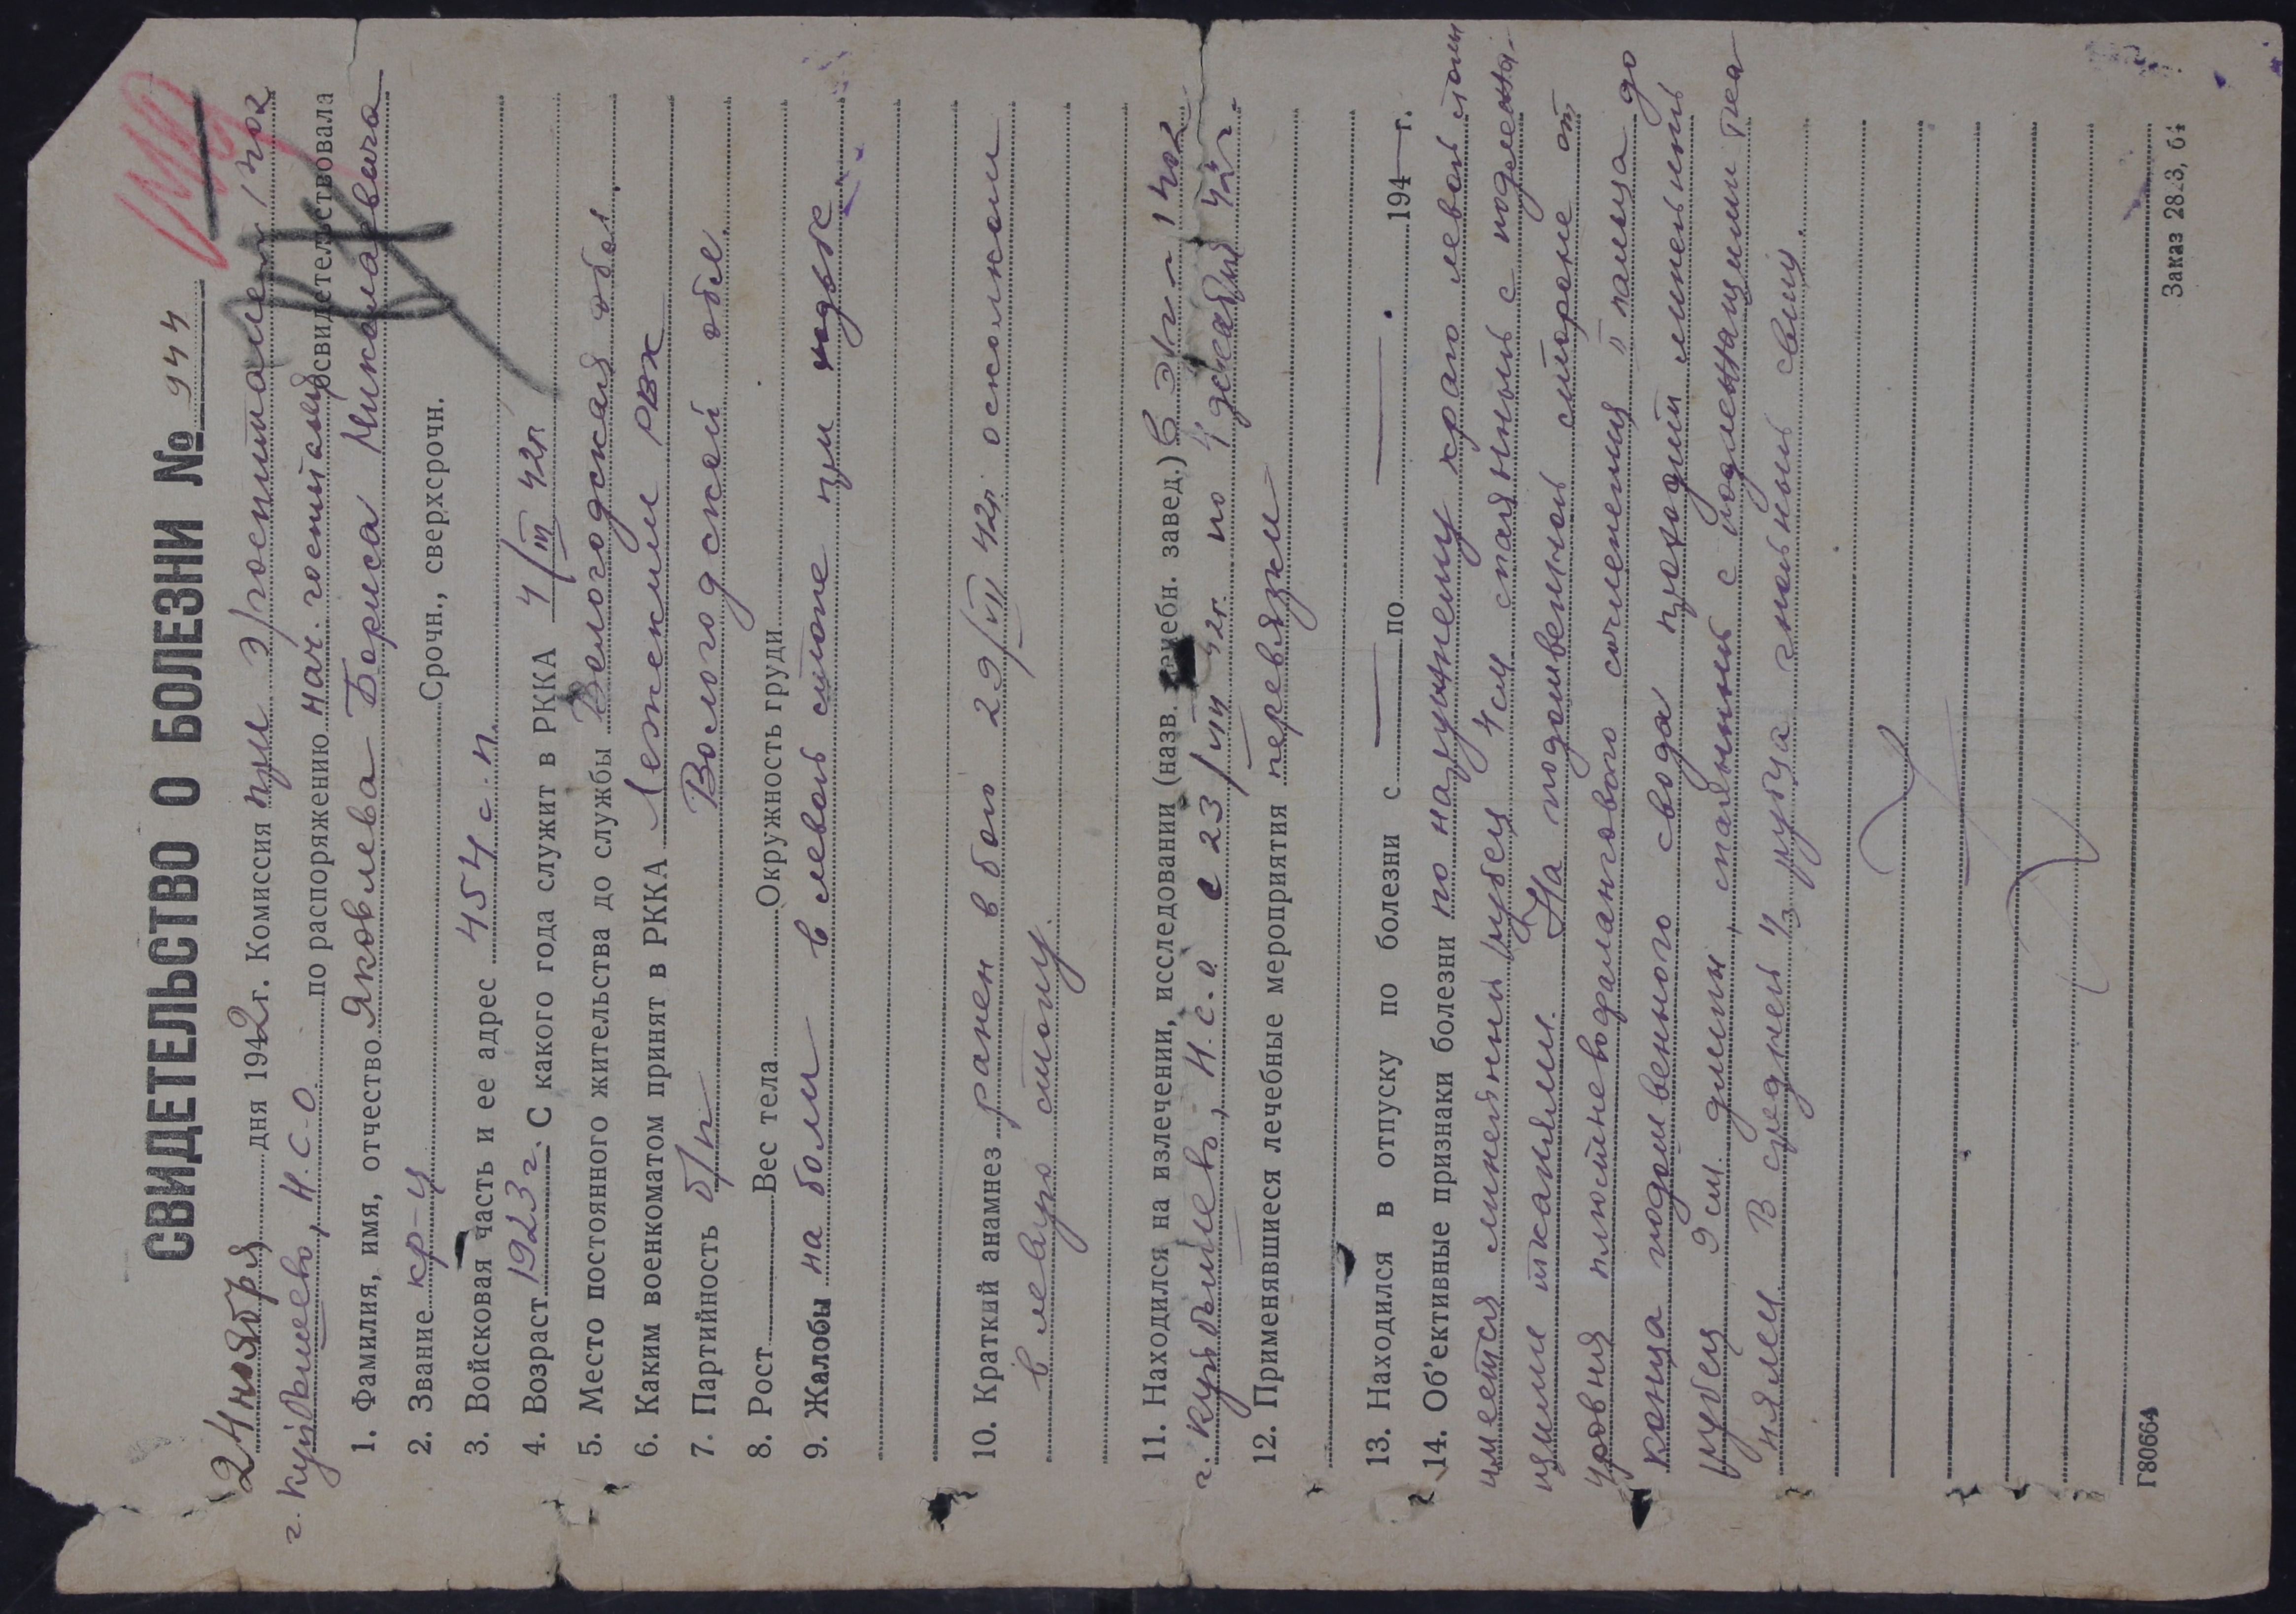 СВИДЕТЕЛЬСТВО О БОЛЕЗНИ № 944
24 ноября дня 1942 г. Комиссия при э/госпитале 1402
г. Куйбышево, Н.С.О. по распоряжению нач. госпиталя освидетельствовала
1. Фамилия, имя, отчество Яковлева Бориса Николаевича
2. Звание кр-ц Срочн., сверхсрочн.
3. Войсковая часть и ее адрес 454 с.п.
4. Возраст 1923 г. С какого года служит в РККА 4/III 42г
5. Место постоянного жительства до службы Вологодская обл.
6. Каким военкоматом принят в РККА Лежским РВК
7. Партийность б/п Вологодской обл.
8. Рост Вес тела Окружность груди
9. Жалобы на боли в левой стопе при ходьбе
10. Краткий анамнез ранен в бою 29/VII 42г. осколком
в левую стопу.
11. Находился на излечении, исследовании (назв. лечебн. завед.) В Э/г 1402
г. Куйбышево, Н.С.О. с 23/VIII 42г. по 4 декабря 42г.
12. Применявшиеся лечебные мероприятия перевязки
13. Находился в отпуску по болезни с по 194 г.
14. Об'ективные признаки болезни по наружнему краю левой стопы
имеется линейный рубец 4 см спаянный с подлежа-
щими тканями. На подошвенной стороне от
уровня плюсневофалангового сочленения II пальца до
конца подошвенного свода проходит линейный
рубец 9 см. длины, спаянный с подлежащими тка
нями. В средней ⅓ рубца гнойный свищ.
Г80664
Заказ 2823, 6